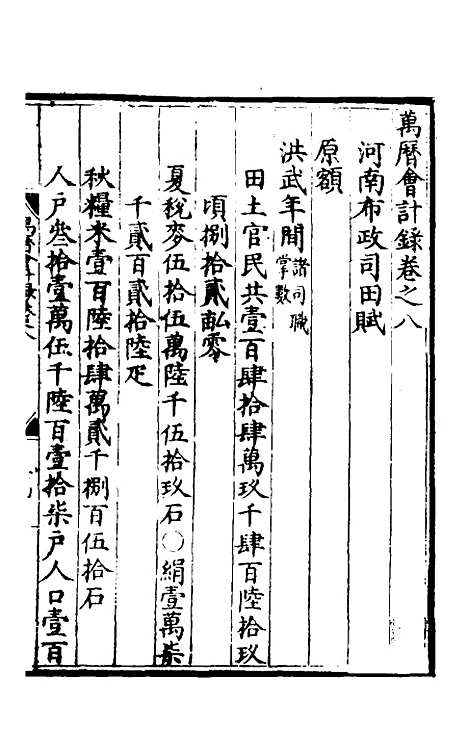 萬曆會計錄卷之八
河南布政司田賦
原額
洪武年間諸司職
掌數
田土官民共壹百肆拾肆萬玖千肆百陸拾玖
頃捌拾貳畝零
夏稅麥伍拾伍萬陸千伍拾玖石○絹壹萬柒
千貳百貳拾陸疋
秋糧米壹百陸拾肆萬貳千捌百伍拾石
人戶叁拾壹萬伍千陸百壹拾柒戶人口壹百